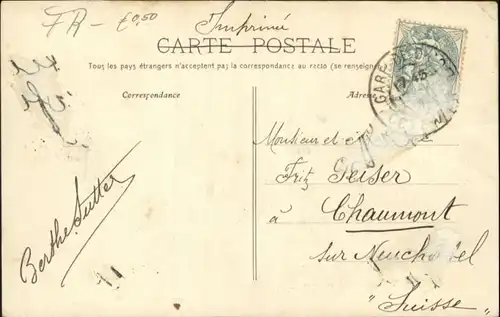 FA - £0,50
Imprimé
CARTE POSTALE
Tous les pays étrangers n'acceptent pas la correspondance au recto (se renseigner
Correspondance
Adresse
GARE
Monsieur et
Fritz Geiser
à
Chaumont
sur Neuchâtel
"Suisse"
Berthe Sutter